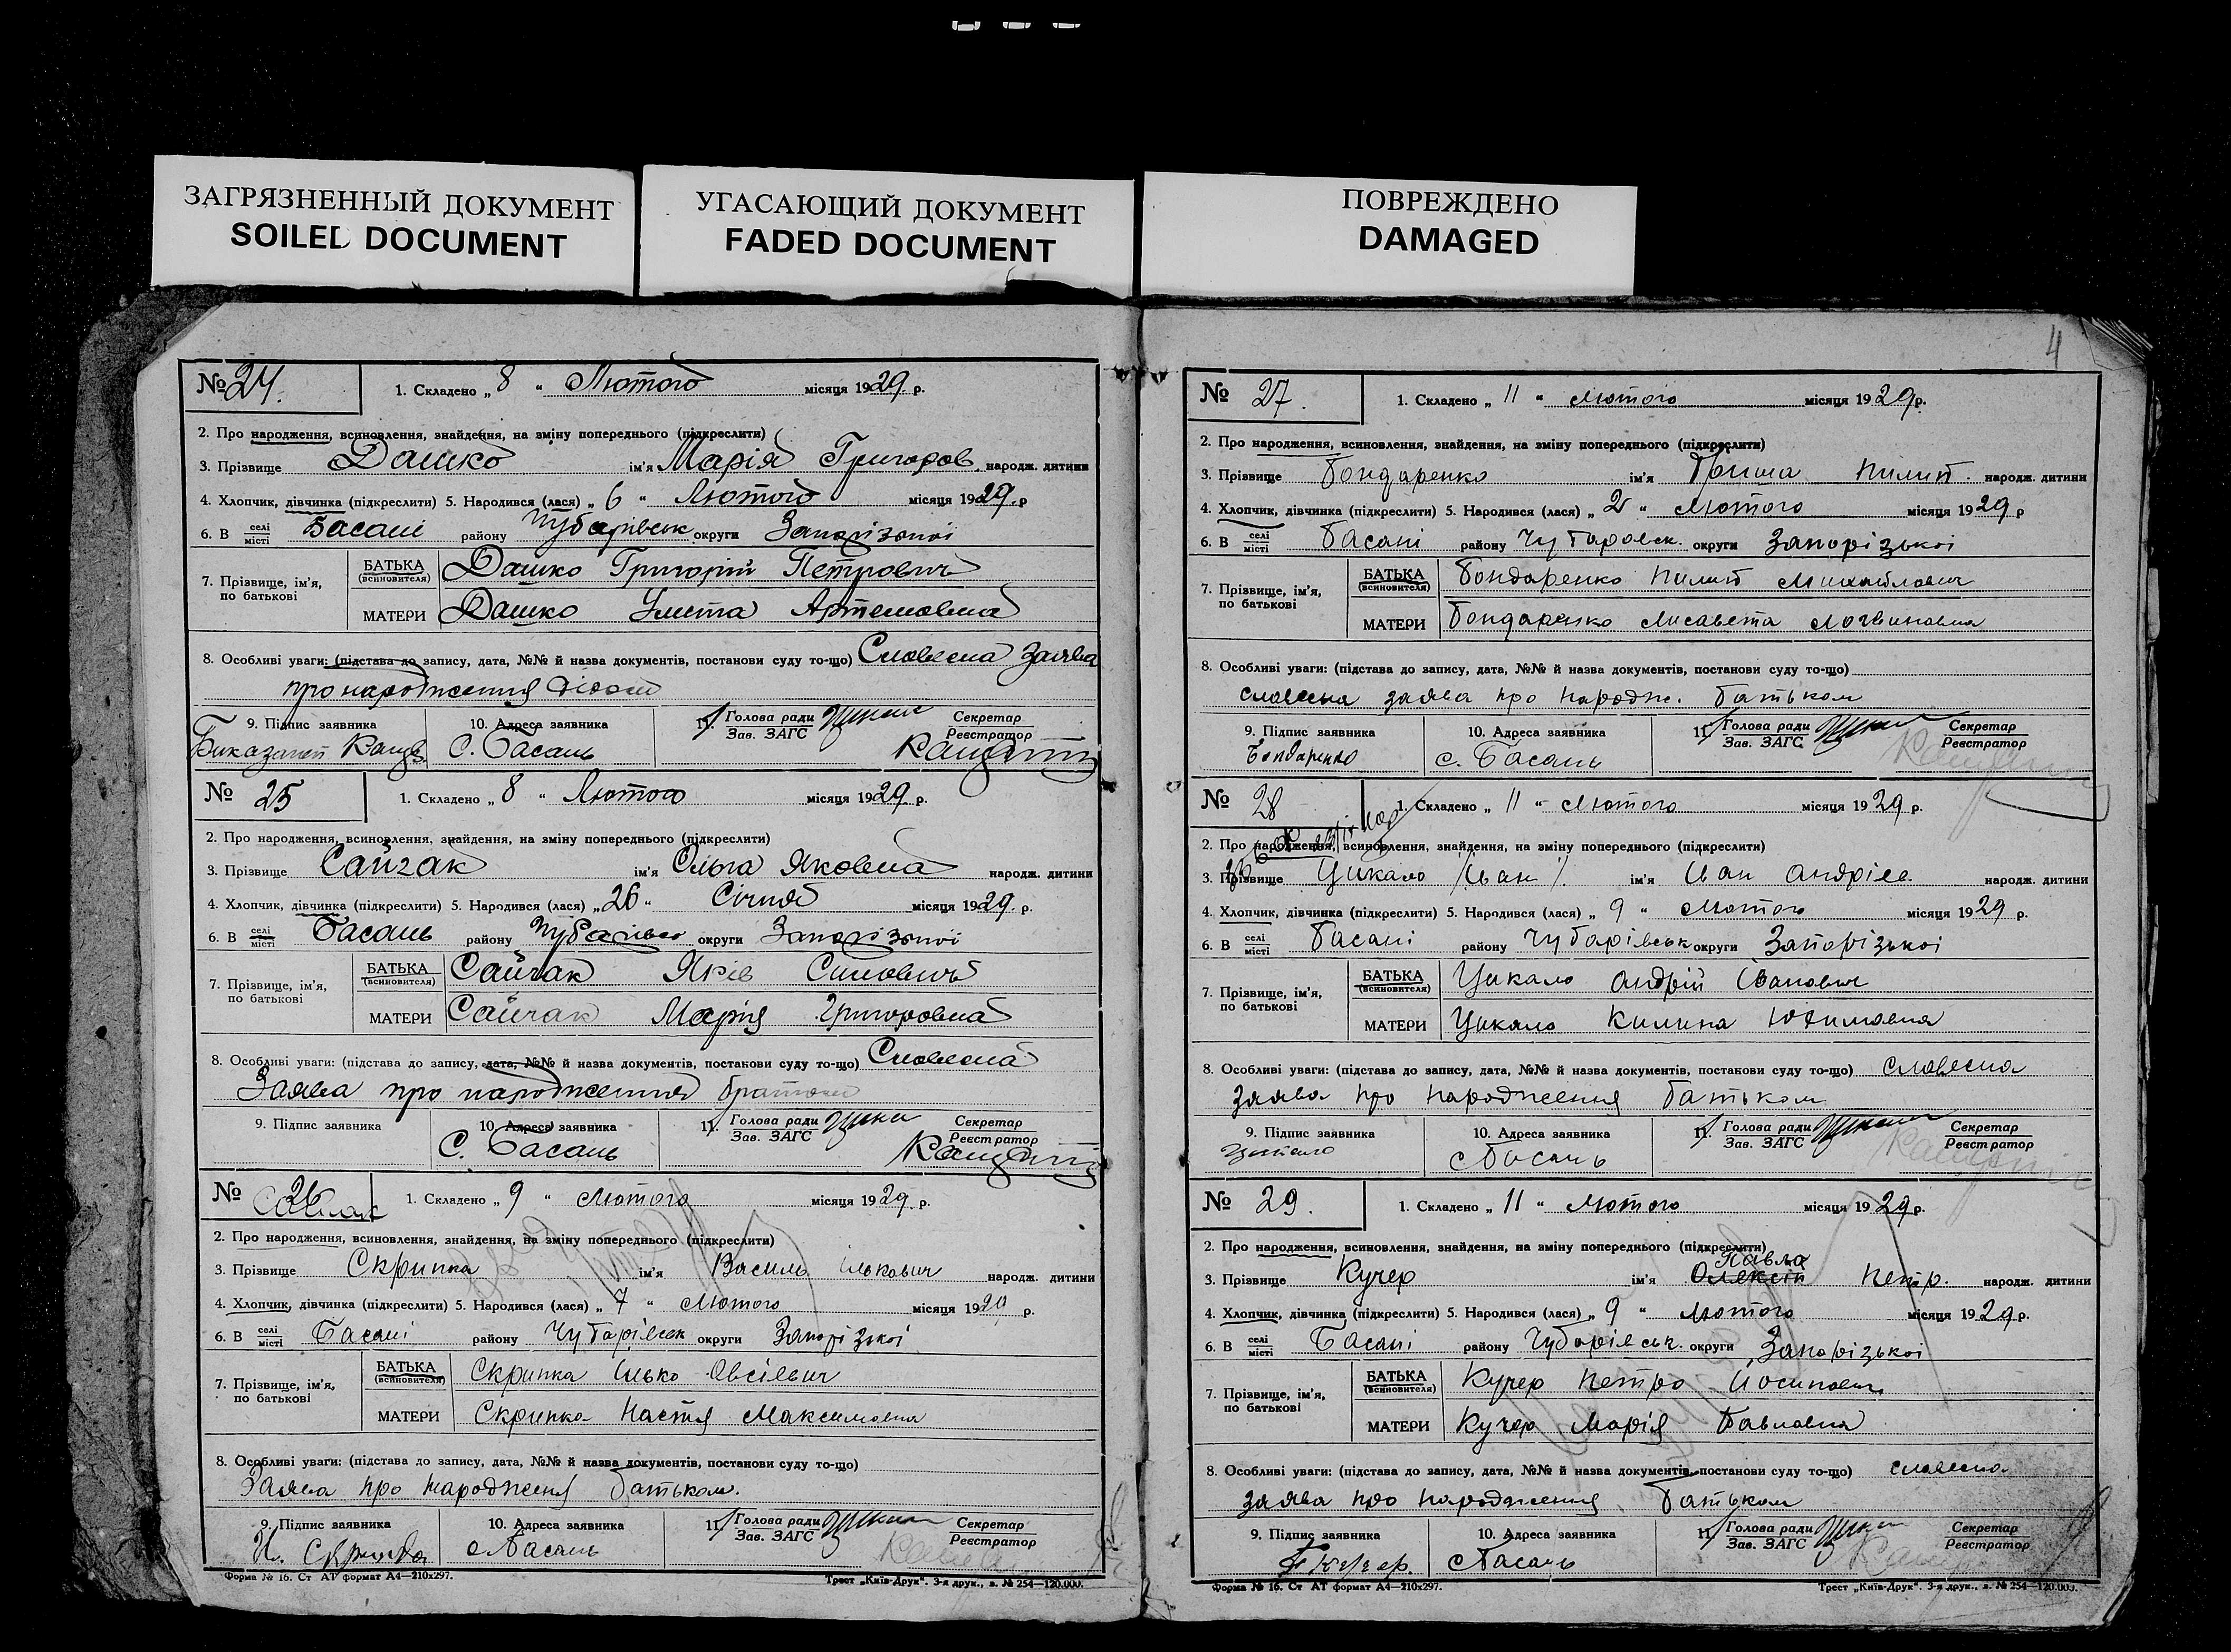 ЗАГРЯЗНЕННЫЙ ДОКУМЕНТ
SOILED DOCUMENT
УГАСАЮЩИЙ ДОКУМЕНТ
FADED DOCUMENT
ПОВРЕЖДЕНО
DAMAGED
№ 24.
1. Складено „ 8 “ Лютого місяця 1929 р.
2. Про народження, всиновлення, знайдення, на зміну попереднього (підкреслити)
3. Прізвище Дашко ім'я Марія Григоров. народж. дитини
4. Хлопчик, дівчинка (підкреслити) 5. Народився (лася) „ 6 “ Лютого місяця 1929 р
6. В селі місті Басані району Чубарівськ округи Запорізької
7. Прізвище, ім'я, по батькові
БАТЬКА (всиновителя) Дашко Григорій Петрович
МАТЕРИ Дашко Улита Артемовна
8. Особливі уваги: (підстава до запису, дата, №№ й назва документів, постанови суду то-що) Словесна заява
про народження дідом
9. Підпис заявника
10. Адреса заявника С. Басань
11. Голова ради Зав. ЗАГС
Секретар Реєстратор
№ 25
1. Складено „ 8 “ Лютого місяця 1929 р.
2. Про народження, всиновлення, знайдення, на зміну попереднього (підкреслити)
3. Прізвище Сайчак ім'я Ольга Яковна народж. дитини
4. Хлопчик, дівчинка (підкреслити) 5. Народився (лася) „ 26 “ Січня місяця 1929 р.
6. В селі місті Басань району округи Запорізької
7. Прізвище, ім'я, по батькові
БАТЬКА (всиновителя) Сайчак Яків
МАТЕРИ Сайчак Марія Григоровна
8. Особливі уваги: (підстава до запису, дата, №№ й назва документів, постанови суду то-що) Словесна
Заява про народження братом
9. Підпис заявника
10. Адреса заявника С. Басань
11. Голова ради Зав. ЗАГС
Секретар Реєстратор
№ 26
1. Складено „ 9 “ Лютого місяця 1929 р.
2. Про народження, всиновлення, знайдення, на зміну попереднього (підкреслити)
3. Прізвище Скрипка ім'я Василь Ількович народж. дитини
4. Хлопчик, дівчинка (підкреслити) 5. Народився (лася) „ 7 “ Лютого місяця 1929 р.
6. В селі місті Басані району Чубарівськ округи Запорізької
7. Прізвище, ім'я, по батькові
БАТЬКА (всиновителя) Скрипка Илько Овсієвич
МАТЕРИ Скрипка Настя Максимовна
8. Особливі уваги: (підстава до запису, дата, №№ й назва документів, постанови суду то-що)
Заява про народженя батьком.
9. Підпис заявника И. Скрипка
10. Адреса заявника с Басань
11. Голова ради Зав. ЗАГС
Секретар Реєстратор
Форма № 16. Ст АТ формат А4—210х297.
Трест „Київ-Друк“. 3-я друк., з. № 254—120.000.
4
№ 27.
1. Складено „ 11 “ Лютого місяця 1929 р.
2. Про народження, всиновлення, знайдення, на зміну попереднього (підкреслити)
3. Прізвище Бондаренко ім'я Гриша Пилип. народж. дитини
4. Хлопчик, дівчинка (підкреслити) 5. Народився (лася) „ 2 “ Лютого місяця 1929 р
6. В селі місті Басані району Чубаровск. округи Запорізької
7. Прізвище, ім'я, по батькові
БАТЬКА (всиновителя) Бондаренко Пилип Михайлович
МАТЕРИ Бондаренко Лисавета Логвиновна
8. Особливі уваги: (підстава до запису, дата, №№ й назва документів, постанови суду то-що)
словесна заява про народж. батьком
9. Підпис заявника Бондаренко
10. Адреса заявника с. Басань
11. Голова ради Зав. ЗАГС
Секретар Реєстратор
№ 28
1. Складено „ 11 “ Лютого місяця 1929 р.
2. Про народження, всиновлення, знайдення, на зміну попереднього (підкреслити)
3. Прізвище Цикало /Иван/. ім'я Иван Андріев. народж. дитини
4. Хлопчик, дівчинка (підкреслити) 5. Народився (лася) „ 9 “ Лютого місяця 1929 р.
6. В селі місті Басані району Чубарівськ округи Запорізької
7. Прізвище, ім'я, по батькові
БАТЬКА (всиновителя) Цикало Андрій Иванович
МАТЕРИ Цикало Килина Юхимовна
8. Особливі уваги: (підстава до запису, дата, №№ й назва документів, постанови суду то-що) словесна
заява про народження батьком
9. Підпис заявника Цикало
10. Адреса заявника с Басань
11. Голова ради Зав. ЗАГС
Секретар Реєстратор
№ 29.
1. Складено „ 11 “ Лютого місяця 1929 р.
2. Про народження, всиновлення, знайдення, на зміну попереднього (підкреслити)
Павло
3. Прізвище Кучер ім'я Олексій Петр. народж. дитини
4. Хлопчик, дівчинка (підкреслити) 5. Народився (лася) „ 9 “ Лютого місяця 1929 р.
6. В селі місті Басані району Чубарівськ. округи Запорізької
7. Прізвище, ім'я, по батькові
БАТЬКА (всиновителя) Кучер Петро Йосипович
МАТЕРИ Кучер Марія Павловна
8. Особливі уваги: (підстава до запису, дата, №№ й назва документів, постанови суду то-що) словесна
заява про народження батьком
9. Підпис заявника Кучер.
10. Адреса заявника с Басань
11. Голова ради Зав. ЗАГС
Секретар Реєстратор
Форма № 16. Ст АТ формат А4—210х297.
Трест „Київ-Друк“. 3-я друк., з. № 254—120.000.